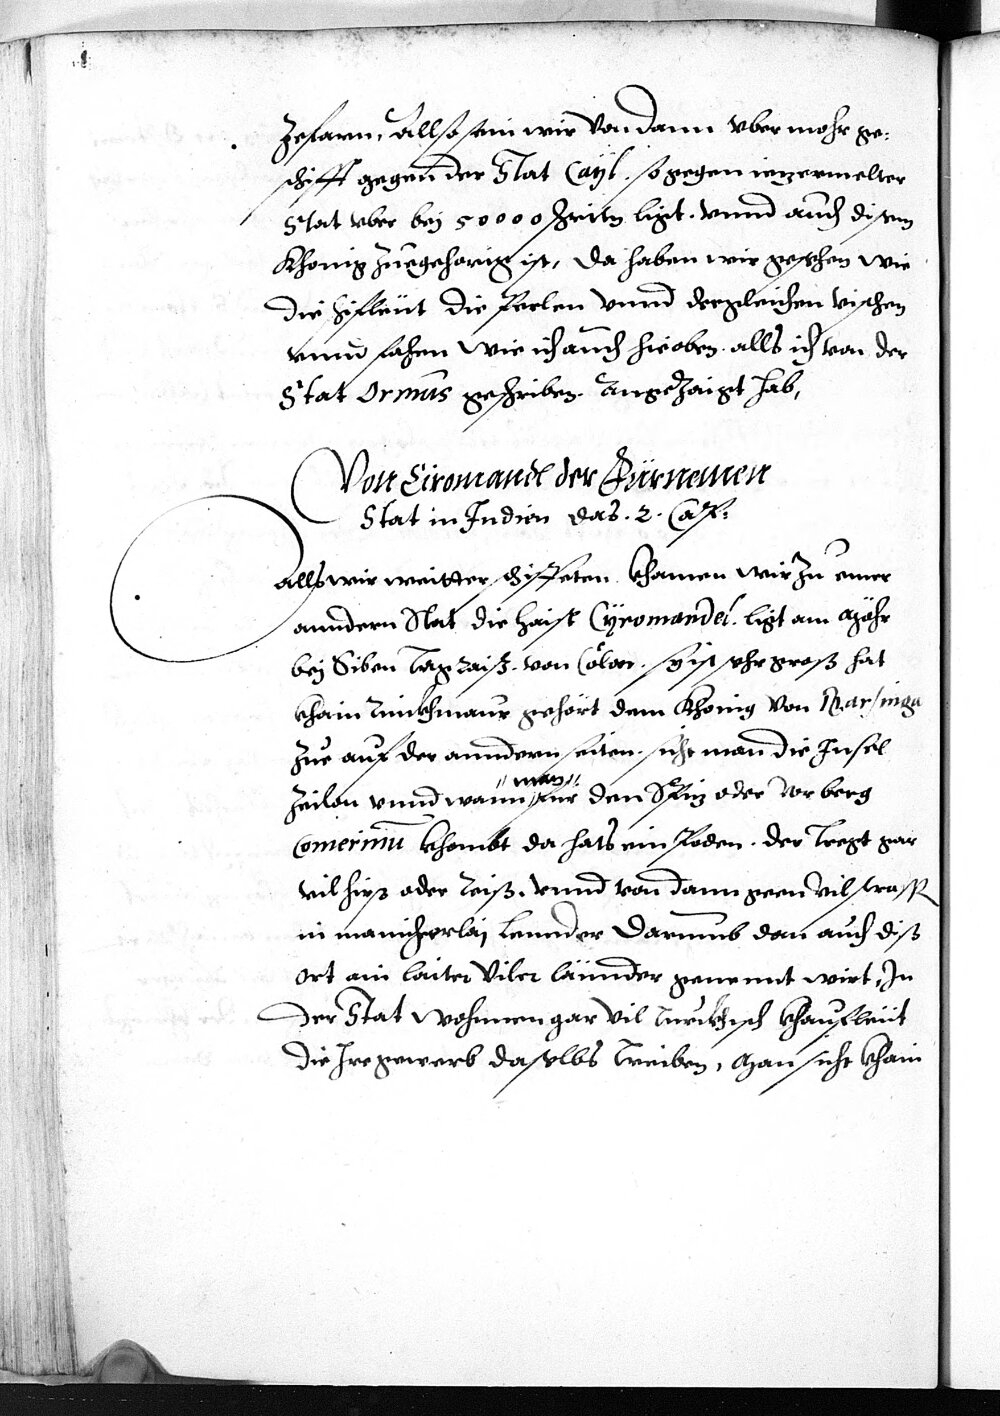 zefarn, Allso sein wir von dann vber mohr ge:
schifft gegen der Stat Cayl. so gegen iezermelter
Stat vber bej 50000 schritn ligt. vnnd auch disem
Khonig zuegehörig ist, da haben wir gesehen wie
die hisleüt die Perlen vnnd dergleichen vischen
vnnd fahen wie ich auch hieoben. alls ich von der
Stat Ormus geschriben. angezaigt hab,
Von Ciromandl der Fürnemen
Stat in Indien das. 2. Cap:
Alls wir weitter schiffeten khamen wir zu einer
anndern Stat die haist Cyromandel. ligt am Möhr
bej Siben Tag raiß. von Colon. sy ist sehr groß hat
khain rinckhmaur gehört dem Khonig von Narsinga
zue auf der anndern seiten. sicht man die Insel
Zeilon vnnd wann man für den Spiz oder vorberg
Comerinũ khombt da hats ein Poden. der Tregt gar
vil hirß oder reiß. vnnd von dann geen vil strass
in manicherlaj lennder Darumb dan auch diß
ort ain laiter viler lännder genennt wirt, In
der Stat wohnnen gar vil Turckhisch khaufleüt
die Ire gewerb daselbs treiben, Man sicht khain